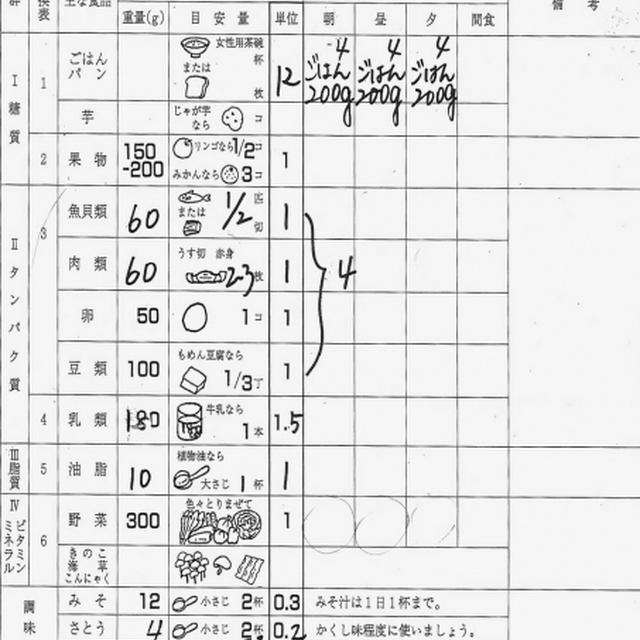 群 換 表 主な食品 重量(g) 目安量 単位 朝 昼 夕 間食 備考
Ⅰ糖質 1 ごはん パン 女性用茶碗 杯 または 枚 12 4 ごはん 200g 4 ごはん 200g 4 ごはん 200g
芋 じゃが芋なら コ
2 果物 150-200 リンゴなら1/2コ みかんなら3コ 1
Ⅱタンパク質 3 魚貝類 60 または 1/2 匹 切 1
肉類 60 うす切 赤身 2-3枚 1 4
卵 50 1コ 1
豆類 100 もめん豆腐なら 1/3丁 1
4 乳類 180 牛乳なら 1本 1.5
Ⅲ脂質 5 油脂 10 植物油なら 大さじ 1杯 1
Ⅳビタミンミネラル 6 野菜 300 色々とりまぜて 1
きのこ 海草 こんにゃく
調味 みそ 12 小さじ 2杯 0.3 みそ汁は1日1杯まで。
さとう 4 小さじ 2杯 0.2 かくし味程度に使いましょう。